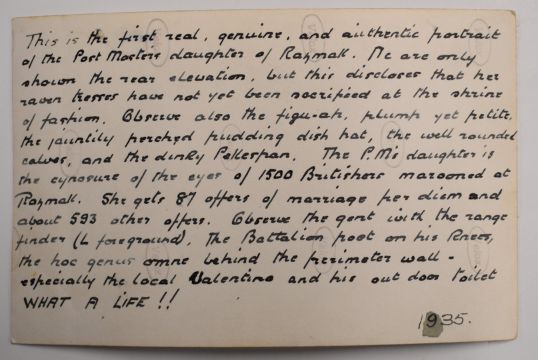 This is the first real, genuine, and authentic portrait
of the Post Masters daughter of Razmak. We are only
shown the rear elevation, but this discloses that her
raven tresses have not yet been sacrificed at the shrine
of fashion. Observe also the figu-ah, plump yet petite,
the jauntily perched pudding dish hat, the well rounded
calves, and the dinky Pekkerpan. The P.M's daughter is
the cynosure of the eyes of 1500 Britishers marooned at
Razmak. She gets 87 offers of marriage per diem and
about 593 other offers. Observe the gent with the range
finder (L foreground), The Battalion poet on his knees,
the hoc genus omne behind the perimeter wall -
especially the local Valentino and his out door toilet
WHAT A LIFE !!
1935.